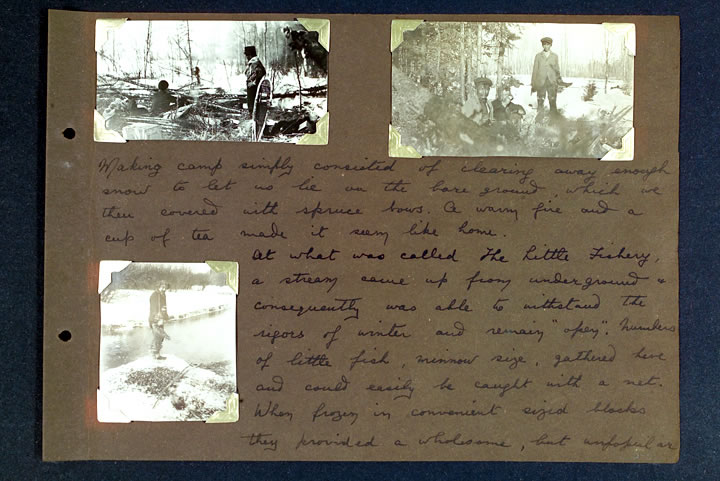 Making camp simply consisted of clearing away enough
snow to let us lie on the bare ground, which we
then covered with spruce bows. A warm fire and a
cup of tea made it seem like home.
At what was called The Little Fishery,
a stream came up from underground &
consequently was able to withstand the
rigors of winter and remain "open". Numbers
of little fish, minnow size, gathered here
and could easily be caught with a net.
When frozen in convenient sized blocks
they provided a wholesome, but unpopular